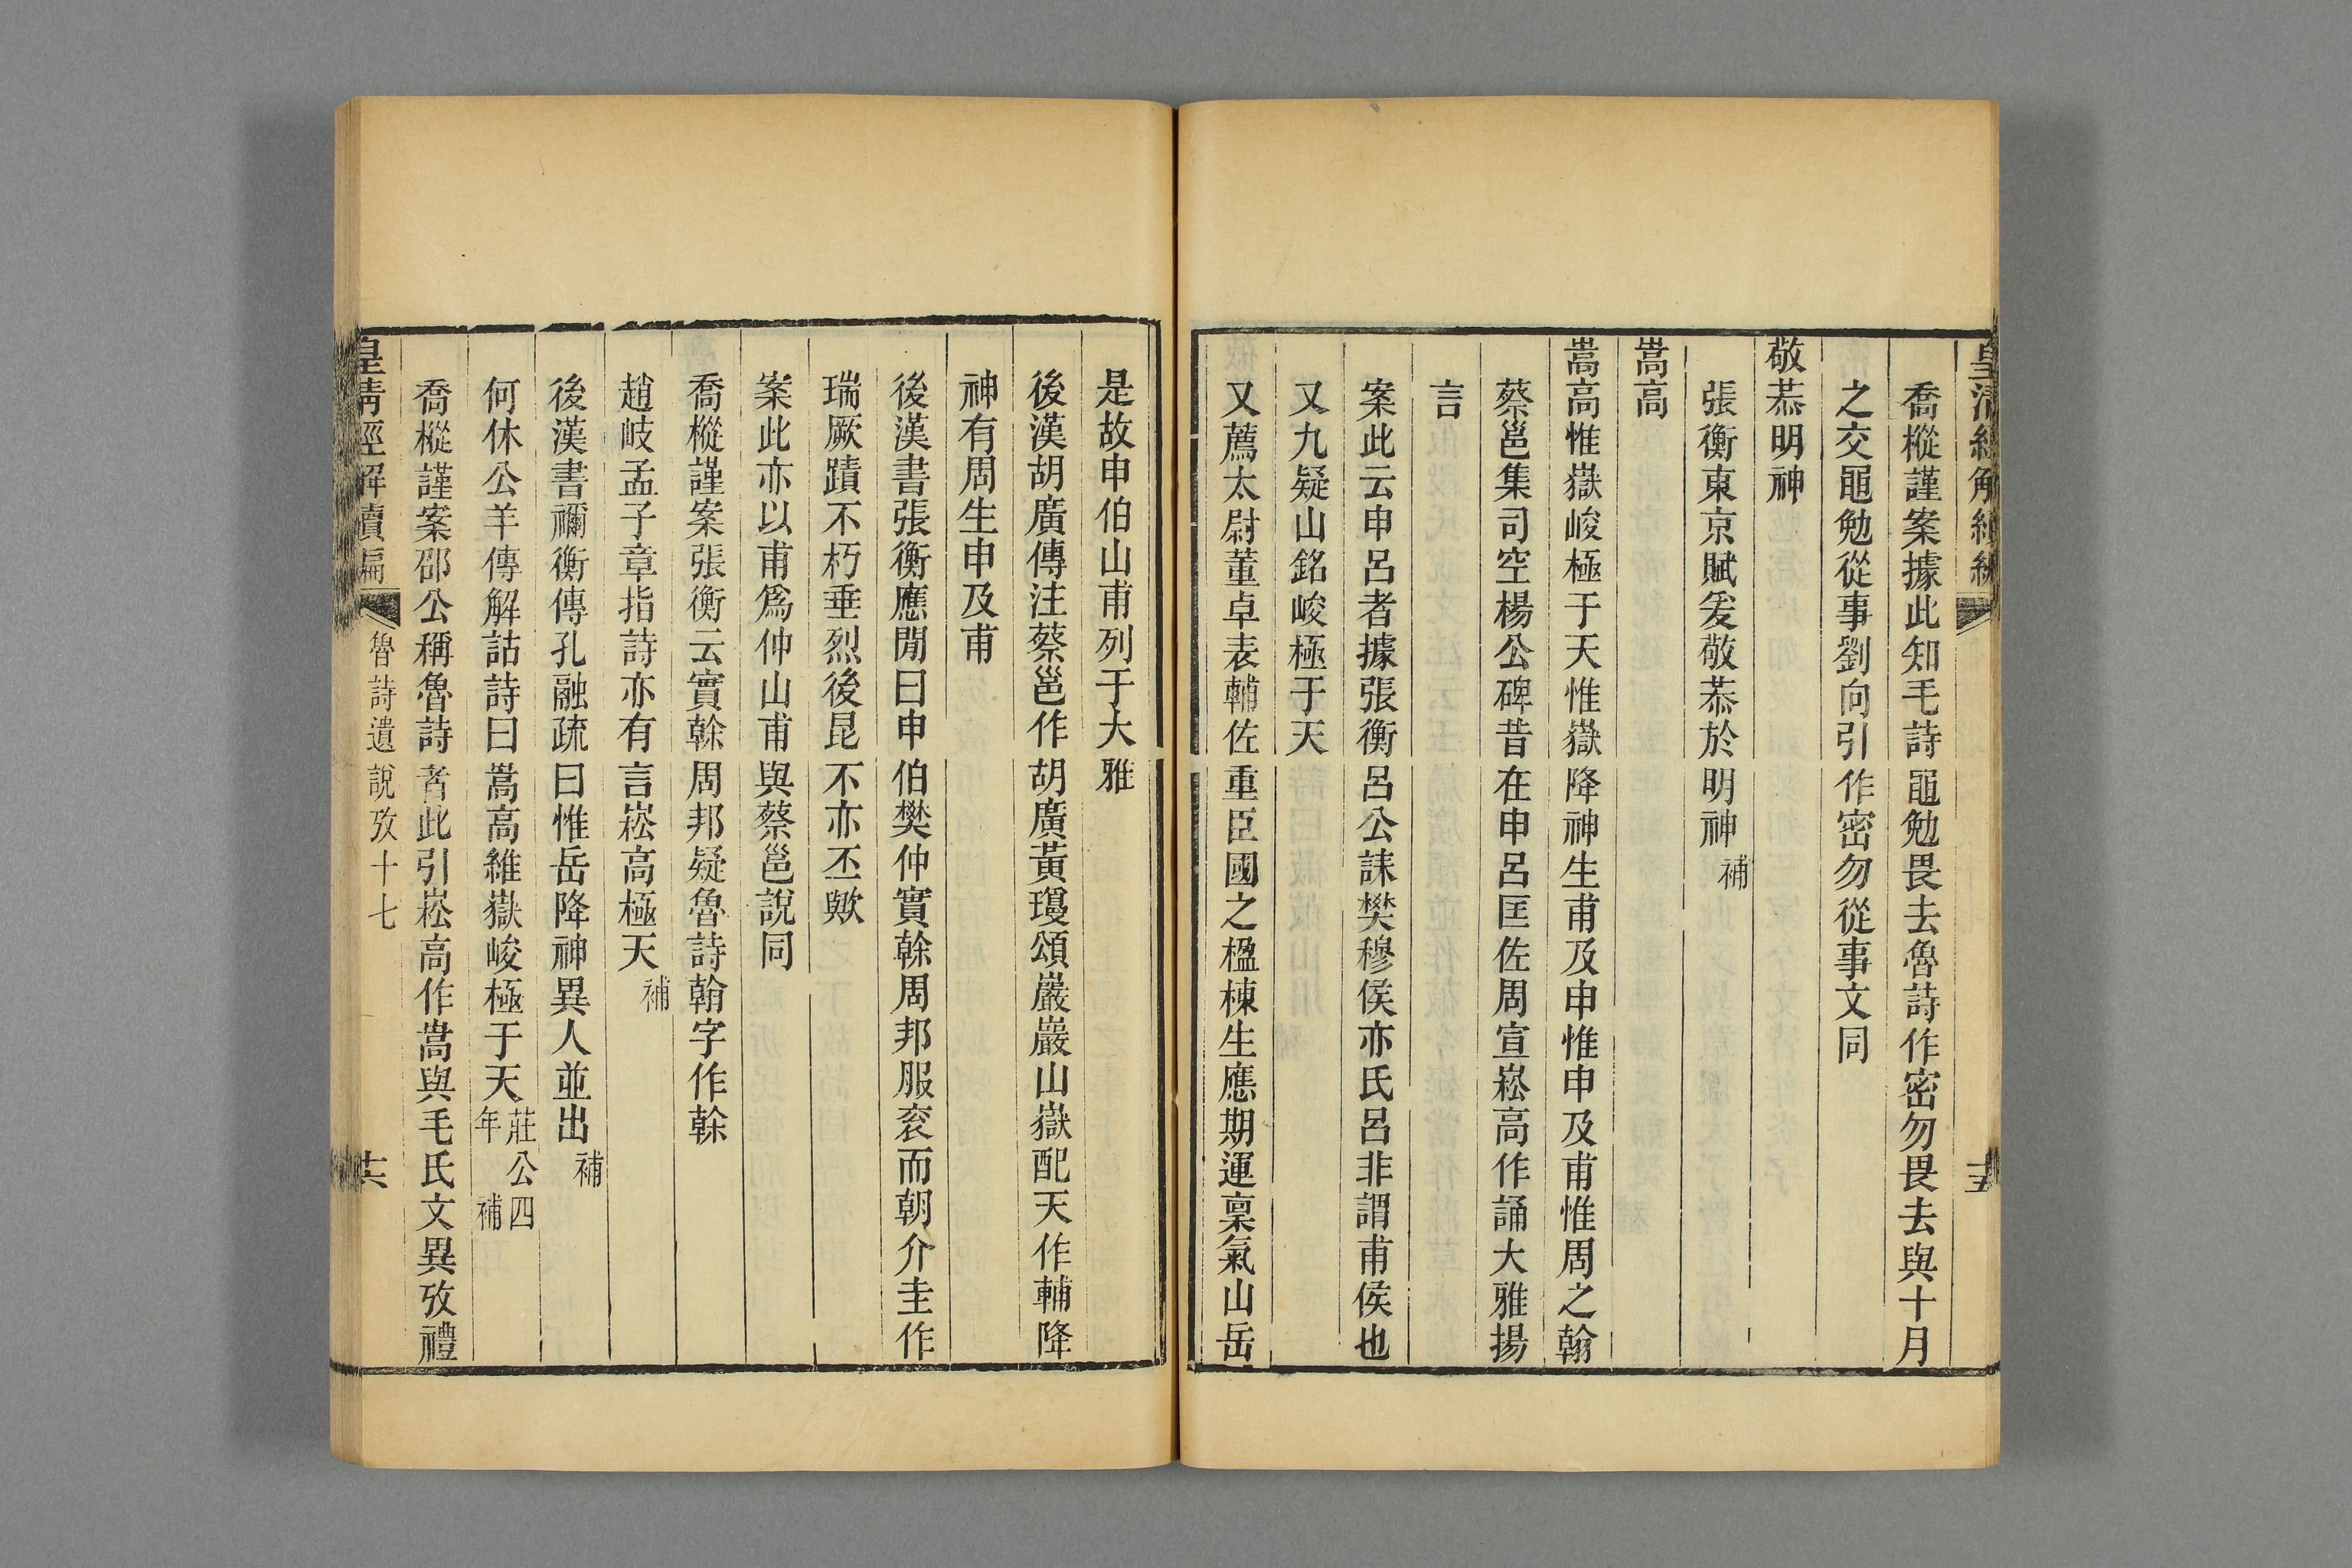 皇清經解續編
十五
喬樅謹案據此知毛詩黽勉畏去魯詩作密勿畏去與十月
之交黽勉從事劉向引作密勿從事文同
敬恭明神
張衡東京賦爰敬恭於明神補
嵩高
嵩高惟嶽峻極于天惟嶽降神生甫及申惟申及甫惟周之翰
蔡邕集司空楊公碑昔在申呂匡佐周宣崧高作誦大雅揚
言
案此云申呂者據張衡呂公誄樊穆侯亦氏呂非謂甫侯也
又九疑山銘峻極于天
又薦太尉董卓表輔佐重臣國之楹棟生應期運稟氣山岳
是故申伯山甫列于大雅
後漢胡廣傳注蔡邕作胡廣黃瓊頌巖巖山嶽配天作輔降
神有周生申及甫
後漢書張衡應閒曰申伯樊仲實榦周邦服袞而朝介圭作
瑞厥蹟不朽垂烈後昆不亦丕歟
案此亦以甫爲仲山甫與蔡邕說同
喬樅謹案張衡云實榦周邦疑魯詩翰字作榦
趙岐孟子章指詩亦有言崧高極天補
後漢書禰衡傳孔融疏曰惟岳降神異人並出補
何休公羊傳解詁詩曰嵩高維嶽峻極于天莊公四年補
喬樅謹案邵公稱魯詩者此引崧高作嵩與毛氏文異攷禮
皇清經解續編
魯詩遺說攷十七
十六